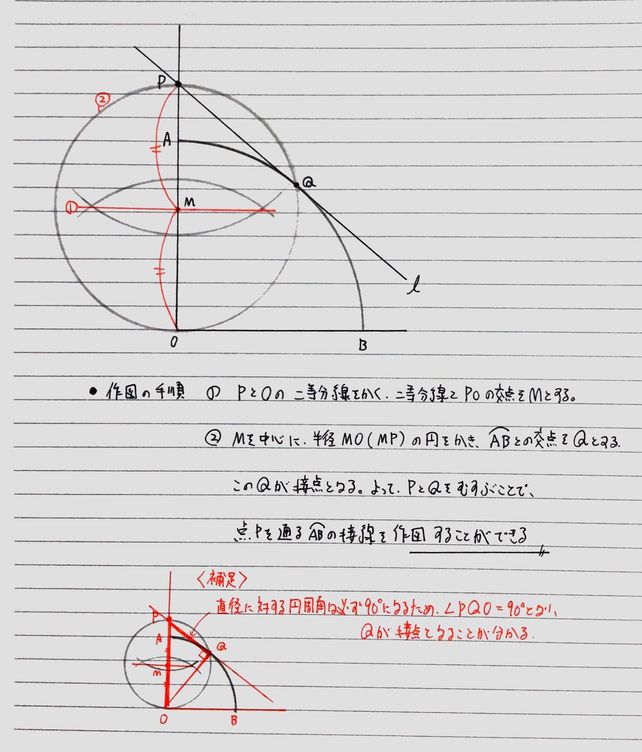 P
②
A
Q
①
M
l
O
B
● 作図の手順 ① PとOの二等分線をかく. 二等分線とPOの交点をMとする。
② Mを中心に、半径MO(MP)の円をかき、ABとの交点をQとする.
このQが接点となる。よって、PとQをむすぶことで、
点Pを通るABの接線を作図することができる
〈補足〉
直径に対する円周角は必ず90°になるため、∠PQO=90°となり、
Qが接点となることが分かる.
P
A
Q
M
O
B